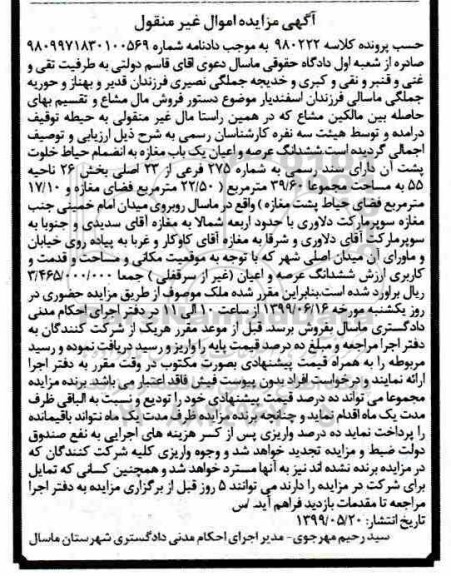 آگهی مزایده اموال غیر منقول
حسب پرونده کلاسه ۹۸۰۲۲۲ به موجب دادنامه شماره ۹۸۰۹۹۷۱۸۳۰۱۰۰۵۶۹
صادره از شعبه اول دادگاه حقوقی ماسال دعوی اقای قاسم دولتی به طرفیت تقی و
غنی و قنبر و نقی و کبری و خدیجه جملگی نصیری فرزندان قدیر و بهناز و حوریه
جملگی ماسالی فرزندان اسفندیار موضوع دستور فروش مال مشاع و تقسیم بهای
حاصله بین مالکین مشاع که در همین راستا مال غیر منقولی به حیطه توقیف
درامده و توسط هیئت سه نفره کارشناسان رسمی به شرح ذیل ارزیابی و توصیف
اجمالی گردیده است ششدانگ عرصه و اعیان یک باب مغازه به انضمام حیاط خلوت
پشت آن دارای سند رسمی به شماره ۲۷۵ فرعی از ۲۳ اصلی بخش ۲۶ ناحیه
۵۵ به مساحت مجموعا ۳۹/۶۰ مترمربع ( ۲۲/۵۰ مترمربع فضای مغازه و ۱۷/۱۰
مترمربع فضای حیاط پشت مغازه ) واقع در ماسال روبروی میدان امام خمینی جنب
مغازه سوپرمارکت دلاوری با حدود اربعه شمالا به مغازه آقای سدیدی و جنوبا به
سوپرمارکت آقای دلاوری و شرقا به مغازه آقای کاوکار و غربا به پیاده روی خیابان
و ماورای آن میدان اصلی شهر که با توجه به موقعیت مکانی و مساحت و قدمت و
کاربری ارزش ششدانگ عرصه و اعیان (غیر از سرقفلی ) جمعا ۳/۴۶۵/۰۰۰/۰۰۰
ریال براورد شده است.بنابراین مقرر شده ملک موصوف از طریق مزایده حضوری در
روز یکشنبه مورخه ۱۳۹۹/۰۶/۱۶ از ساعت ۱۰ الی ۱۱ در دفتر اجرای احکام مدنی
دادگستری ماسال بفروش برسد. قبل از موعد مقرر هریک از شرکت کنندگان به
دفتر اجرا مراجعه و مبلغ ده درصد قیمت پایه را واریز و رسید دریافت نموده و رسید
مربوطه را به همراه قیمت پیشنهادی بصورت مکتوب در وقت مقرر به دفتر اجرا
ارائه نمایند و درخواست افراد بدون پیوست فیش فاقد اعتبار می باشد. برنده مزایده
مجموعا می تواند ده درصد قیمت پیشنهادی خود را تودیع و نسبت به الباقی ظرف
مدت یک ماه اقدام نماید و چنانچه برنده مزایده ظرف مدت یک ماه نتواند باقیمانده
را پرداخت نماید ده درصد واریزی پس از کسر هزینه های اجرایی به نفع صندوق
دولت ضبط و مزایده تجدید خواهد شد و وجوه واریزی کلیه شرکت کنندگان که
در مزایده برنده نشده اند نیز به آنها مسترد خواهد شد و همچنین کسانی که تمایل
برای شرکت در مزایده را دارند می توانند ۵ روز قبل از برگزاری مزایده به دفتر اجرا
مراجعه تا مقدمات بازدید فراهم آید. /س
تاریخ انتشار: ۱۳۹۹/۰۵/۲۰
سید رحیم مهرجوی- مدیر اجرای احکام مدنی دادگستری شهرستان ماسال